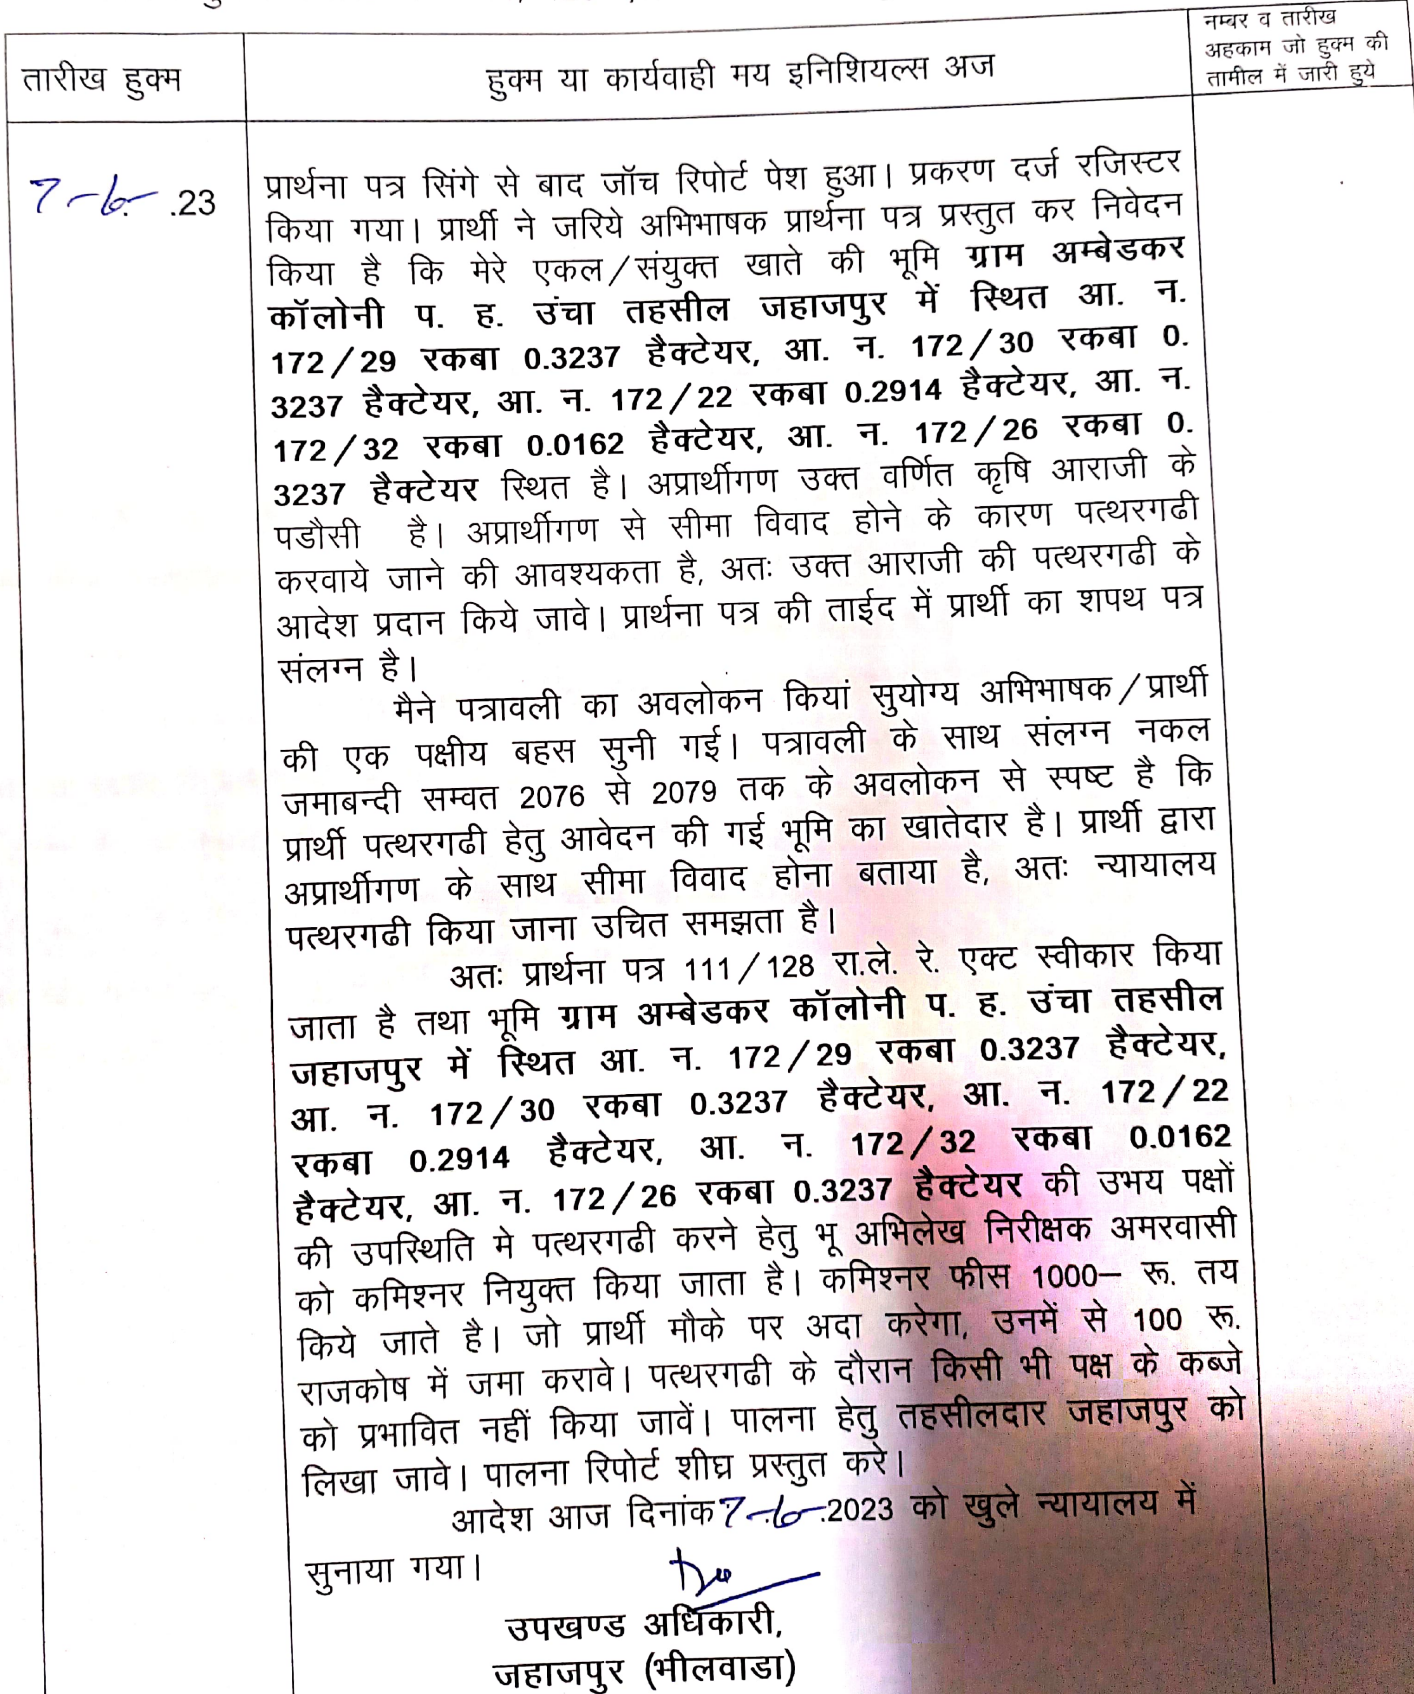 तारीख हुक्म
हुक्म या कार्यवाही मय इनिशियल्स अज
नम्बर व तारीख
अहकाम जो हुक्म की
तामील में जारी हुये
7-6-.23
प्रार्थना पत्र सिंगे से बाद जॉच रिपोर्ट पेश हुआ। प्रकरण दर्ज रजिस्टर
किया गया। प्रार्थी ने जरिये अभिभाषक प्रार्थना पत्र प्रस्तुत कर निवेदन
किया है कि मेरे एकल/संयुक्त खाते की भूमि ग्राम अम्बेडकर
कॉलोनी प. ह. उंचा तहसील जहाजपुर में स्थित आ. न.
172/29 रकबा 0.3237 हैक्टेयर, आ. न. 172/30 रकबा 0.
3237 हैक्टेयर, आ. न. 172/22 रकबा 0.2914 हैक्टेयर, आ. न.
172/32 रकबा 0.0162 हैक्टेयर, आ. न. 172/26 रकबा 0.
3237 हैक्टेयर स्थित है। अप्रार्थीगण उक्त वर्णित कृषि आराजी के
पडौसी है। अप्रार्थीगण से सीमा विवाद होने के कारण पत्थरगढी
करवाये जाने की आवश्यकता है, अतः उक्त आराजी की पत्थरगढी के
आदेश प्रदान किये जावे। प्रार्थना पत्र की ताईद में प्रार्थी का शपथ पत्र
संलग्न है।
मैने पत्रावली का अवलोकन कियां सुयोग्य अभिभाषक/प्रार्थी
की एक पक्षीय बहस सुनी गई। पत्रावली के साथ संलग्न नकल
जमाबन्दी सम्वत 2076 से 2079 तक के अवलोकन से स्पष्ट है कि
प्रार्थी पत्थरगढी हेतु आवेदन की गई भूमि का खातेदार है। प्रार्थी द्वारा
अप्रार्थीगण के साथ सीमा विवाद होना बताया है, अतः न्यायालय
पत्थरगढी किया जाना उचित समझता है।
अतः प्रार्थना पत्र 111/128 रा.ले. रे. एक्ट स्वीकार किया
जाता है तथा भूमि ग्राम अम्बेडकर कॉलोनी प. ह. उंचा तहसील
जहाजपुर में स्थित आ. न. 172/29 रकबा 0.3237 हैक्टेयर,
आ. न. 172/30 रकबा 0.3237 हैक्टेयर, आ. न. 172/22
रकबा 0.2914 हैक्टेयर, आ. न. 172/32 रकबा 0.0162
हैक्टेयर, आ. न. 172/26 रकबा 0.3237 हैक्टेयर की उभय पक्षों
की उपस्थिति मे पत्थरगढी करने हेतु भू अभिलेख निरीक्षक अमरवासी
को कमिश्नर नियुक्त किया जाता है। कमिश्नर फीस 1000– रू. तय
किये जाते है। जो प्रार्थी मौके पर अदा करेगा, उनमें से 100 रू.
राजकोष में जमा करावे। पत्थरगढी के दौरान किसी भी पक्ष के कब्जे
को प्रभावित नहीं किया जावें। पालना हेतु तहसीलदार जहाजपुर को
लिखा जावे। पालना रिपोर्ट शीघ्र प्रस्तुत करे।
आदेश आज दिनांक 7-6-.2023 को खुले न्यायालय में
सुनाया गया।
उपखण्ड अधिकारी,
जहाजपुर (भीलवाडा)